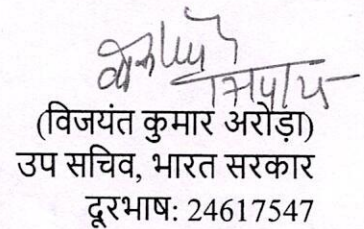 (विजयंत कुमार अरोड़ा)
उप सचिव, भारत सरकार
दूरभाष: 24617547